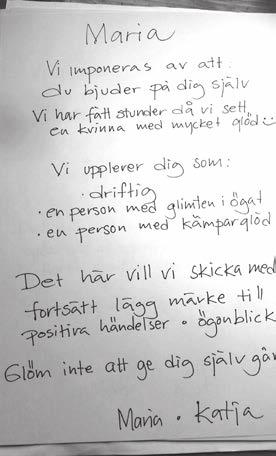 Maria
Vi imponeras av att:
du bjuder på dig själv
Vi har fått stunder då vi sett
en kvinna med mycket glöd
Vi upplever dig som:
· driftig
· en person med glimten i ögat
· en person med kämparglöd
Det här vill vi skicka med
fortsätt lägg märke till
positiva händelser · ögonblick
Glöm inte att ge dig själv
Maria · Katja